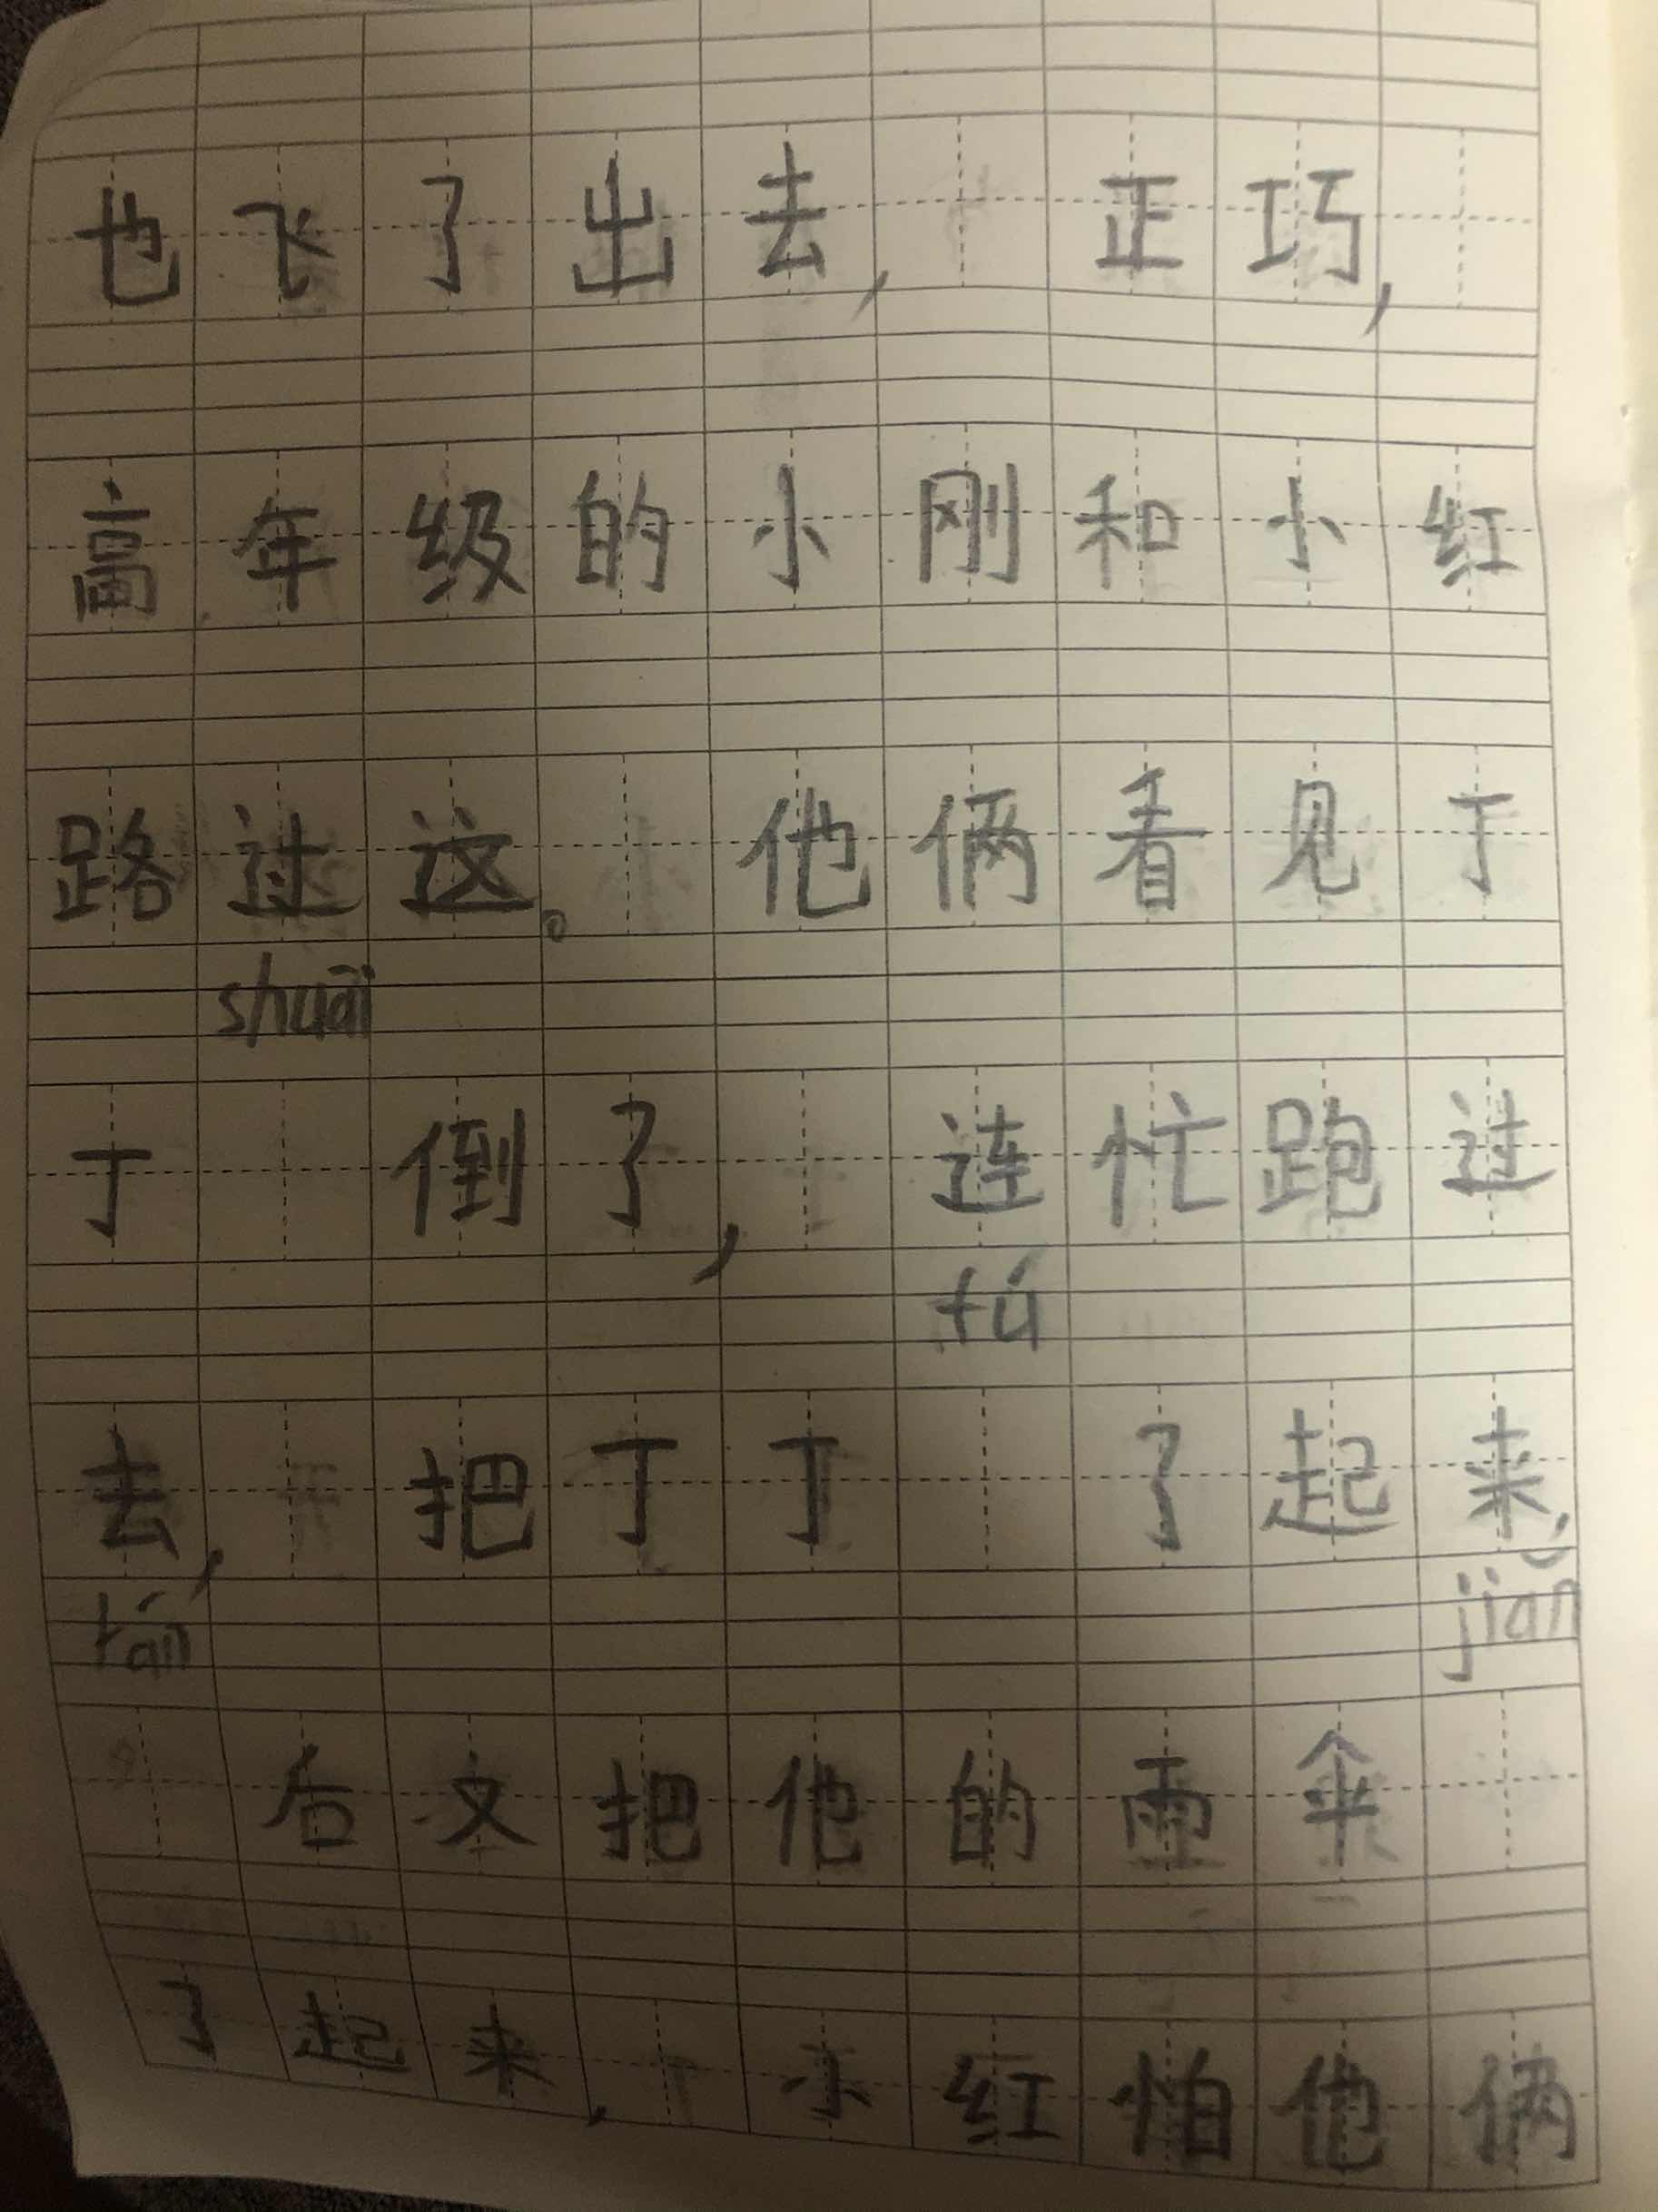 也飞了出去,正巧,
高年级的小刚和小红
路过这。他俩看见丁
shuāi
丁 倒了,连忙跑过
fú
去,把丁丁 了起来,
rán jiǎn
后文把他的雨伞
了起来,小红怕他俩